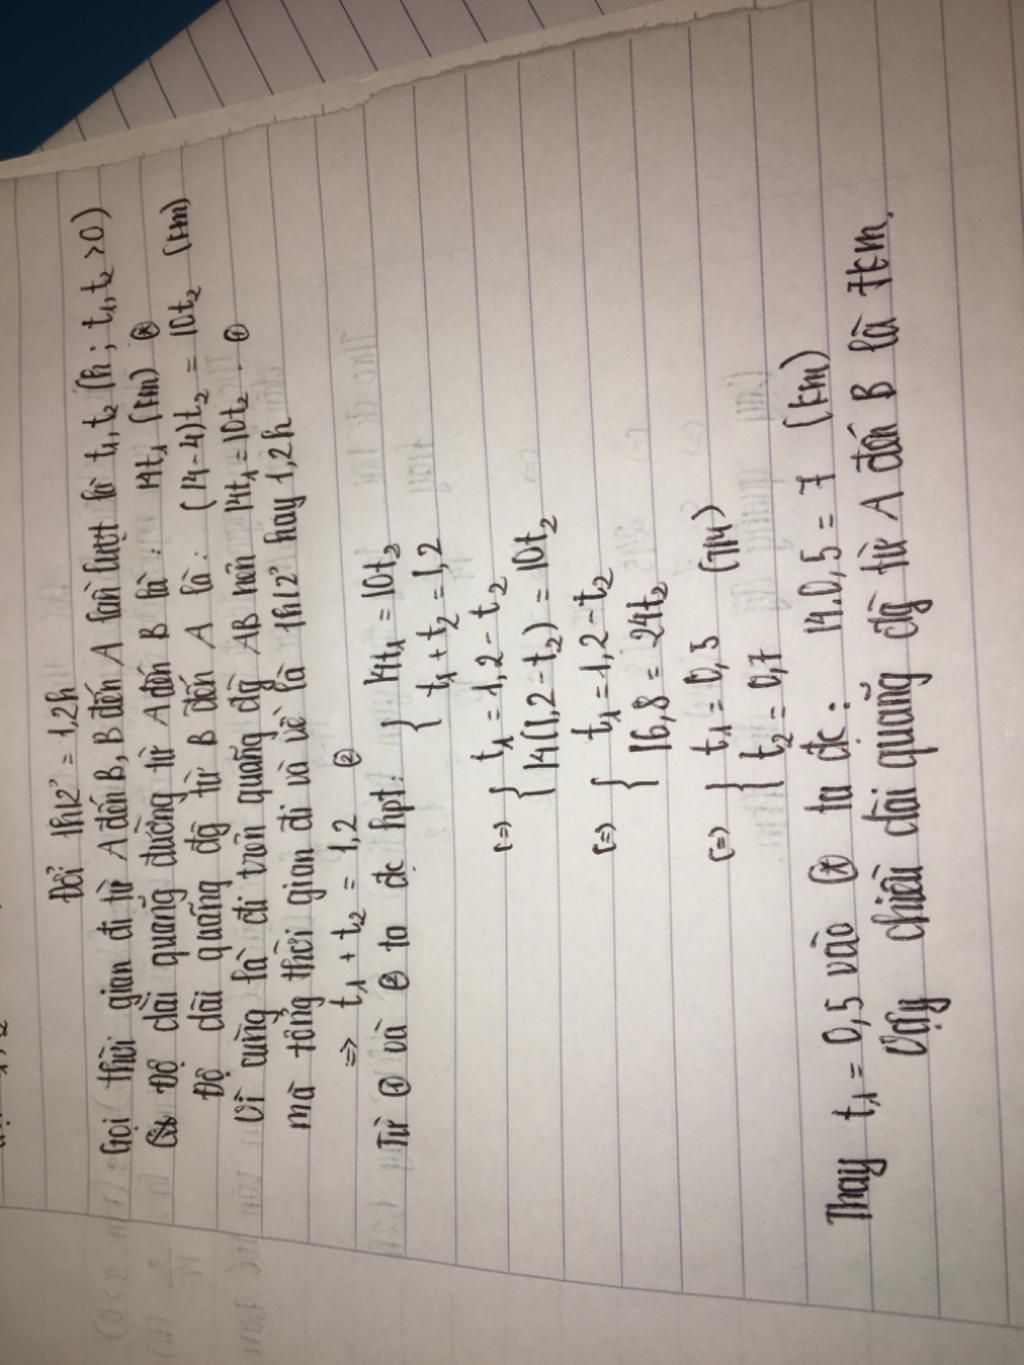 Đổi 1h12' = 1,2h
Gọi thời gian đi từ A đến B, B đến A lần lượt là t₁, t₂ (h; t₁, t₂ >0)
Độ dài quãng đường từ A đến B là: 14t₁ (km) (*)
Độ dài quãng đg từ B đến A là: (14-4)t₂ = 10t₂ (km)
Vì cùng là đi trên quãng đg AB nên 14t₁ = 10t₂. ①
mà tổng thời gian đi và về là 1h12' hay 1,2h
=> t₁ + t₂ = 1,2 ②
Từ ① và ② ta đc hpt: { 14t₁ = 10t₂
t₁ + t₂ = 1,2
(=) { t₁ = 1,2 - t₂
14(1,2 - t₂) = 10t₂
(=) { t₁ = 1,2 - t₂
16,8 = 24t₂
(=) { t₁ = 0,5 (TM)
t₂ = 0,7
Thay t₁ = 0,5 vào (*) ta đc: 14.0,5 = 7 (km)
Vậy chiều dài quãng đg từ A đến B là 7km.